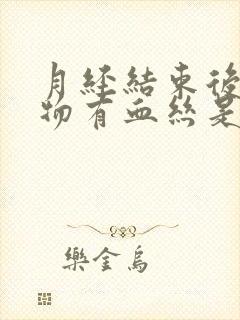 月經結束後
物有血絲是
樂金鳥